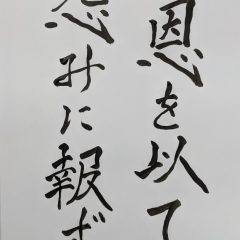 恩を以て
怨みに報ず